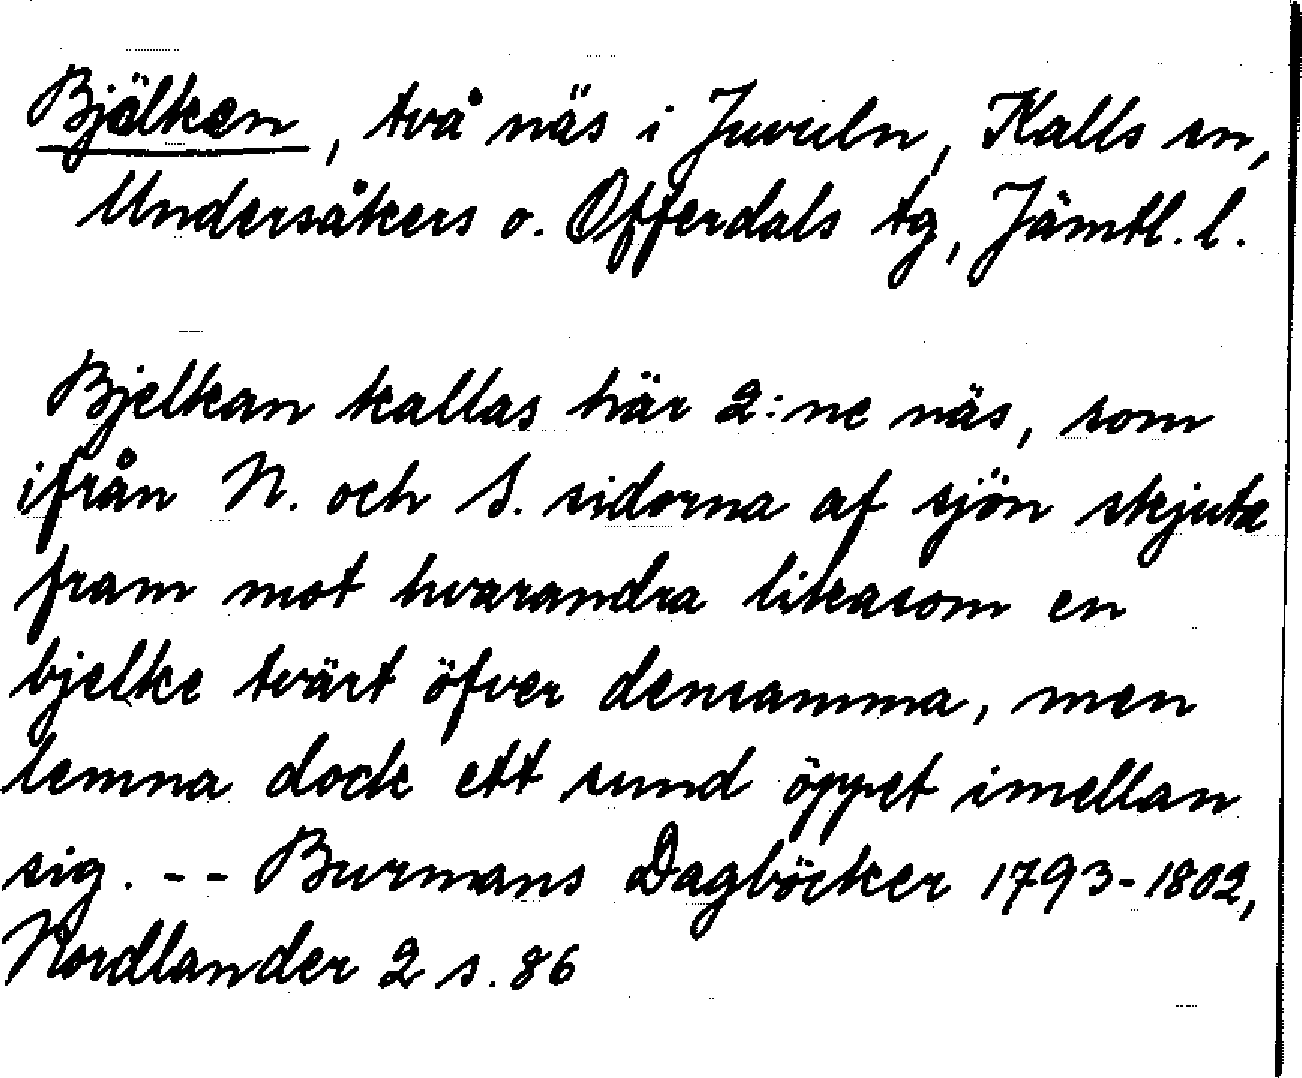 Bjälken, två näs i Juvuln, Kalls sn,
Undersåkers o. Offerdals tg, Jämtl. l.
Bjelkan kallas här 2:ne näs, som
ifrån N. och S. sidorna af sjön skjuta
fram mot hvarandra likasom en
bjelke tvärt öfver densamma, men
lemna dock ett sund öppet imellan
sig. -- Burmans Dagböcker 1793-1802,
Nordlander 2 s. 86